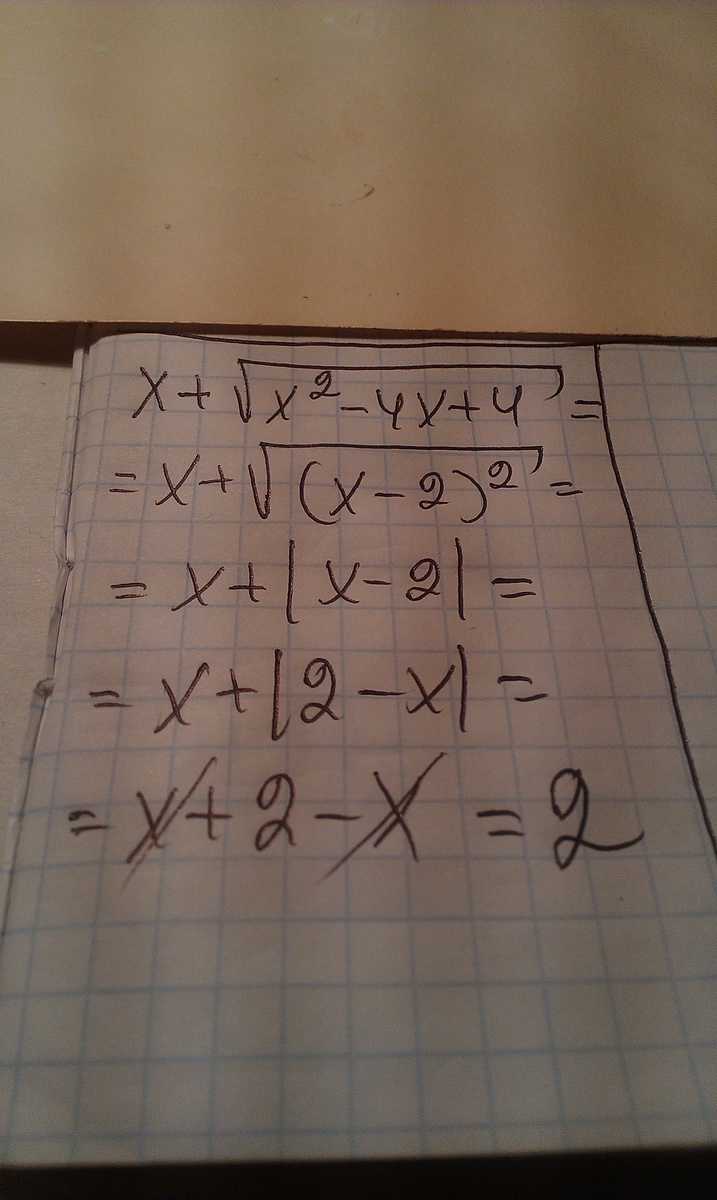 x+√(x²-4x+4) =
= x+√((x-2)²) =
= x+|x-2| =
= x+|2-x| =
= x+2-x = 2